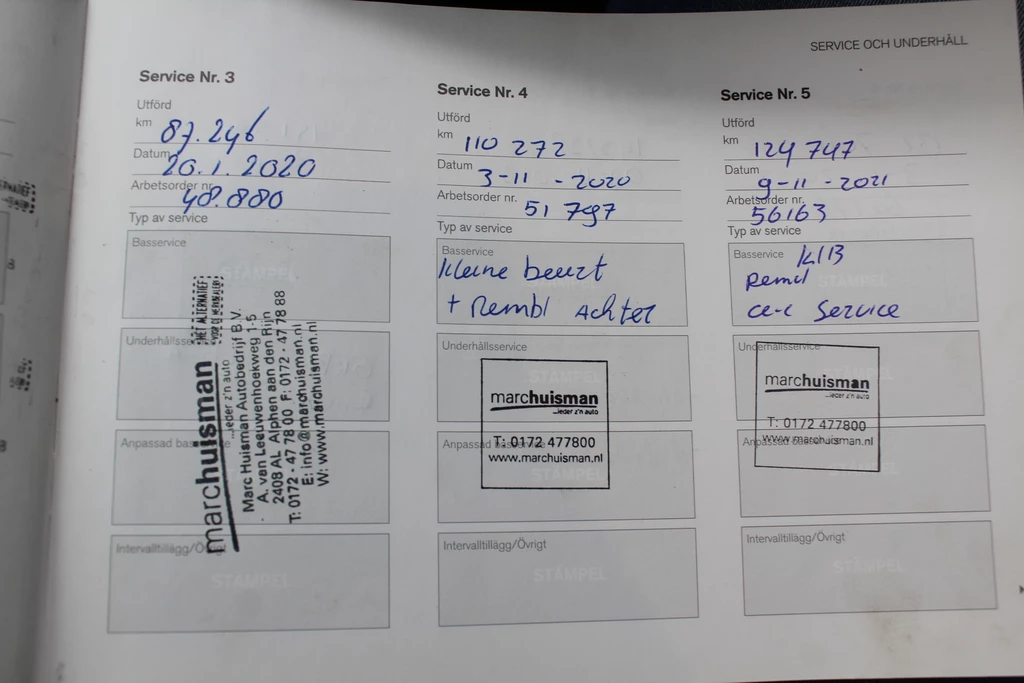 SERVICE OCH UNDERHÅLL
Service Nr. 3
Utförd
km 87.246
Datum 20.1.2020
Arbetsorder nr. 48.880
Typ av service
Basservice
STÄMPEL
Underhållsse
Anpassad bas
Intervalltillägg/Övrigt
STÄMPEL
HET ALTERNATIEF
marchuisman
...ieder z'n auto
Marc Huisman Autobedrijf B.V.
A. van Leeuwenhoekweg 1-5
2408 AL Alphen aan den Rijn
T: 0172 - 47 78 00 F: 0172 - 47 78 88
E: info@marchuisman.nl
W: www.marchuisman.nl
Service Nr. 4
Utförd
km 110 272
Datum 3-11 - 2020
Arbetsorder nr. 51 797
Typ av service
Basservice
kleine beurt
+ Rembl Achter
Underhållsservice
STÄMPEL
marchuisman
...ieder z'n auto
T: 0172 477800
www.marchuisman.nl
Anpassad basservice
STÄMPEL
Intervalltillägg/Övrigt
STÄMPEL
Service Nr. 5
Utförd
km 124 747
Datum 9-11 - 2021
Arbetsorder nr. 56163
Typ av service
Basservice KlB
STÄMPEL
Service
Underhållsservice
STÄMPEL
marchuisman
...ieder z'n auto
T: 0172 477800
www.marchuisman.nl
Anpassad
STÄMPEL
Intervalltillägg/Övrigt
STÄMPEL